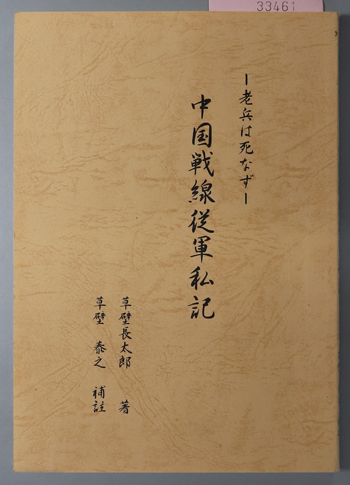 33461
ー老兵は死なずー
中国戦線従軍私記
草壁長太郎 著
草壁 泰之 補註